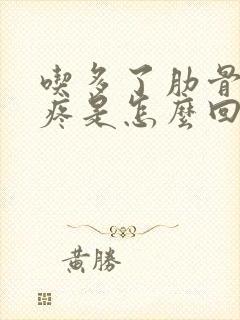 喫多了肋骨
疼是怎麼回
黃勝